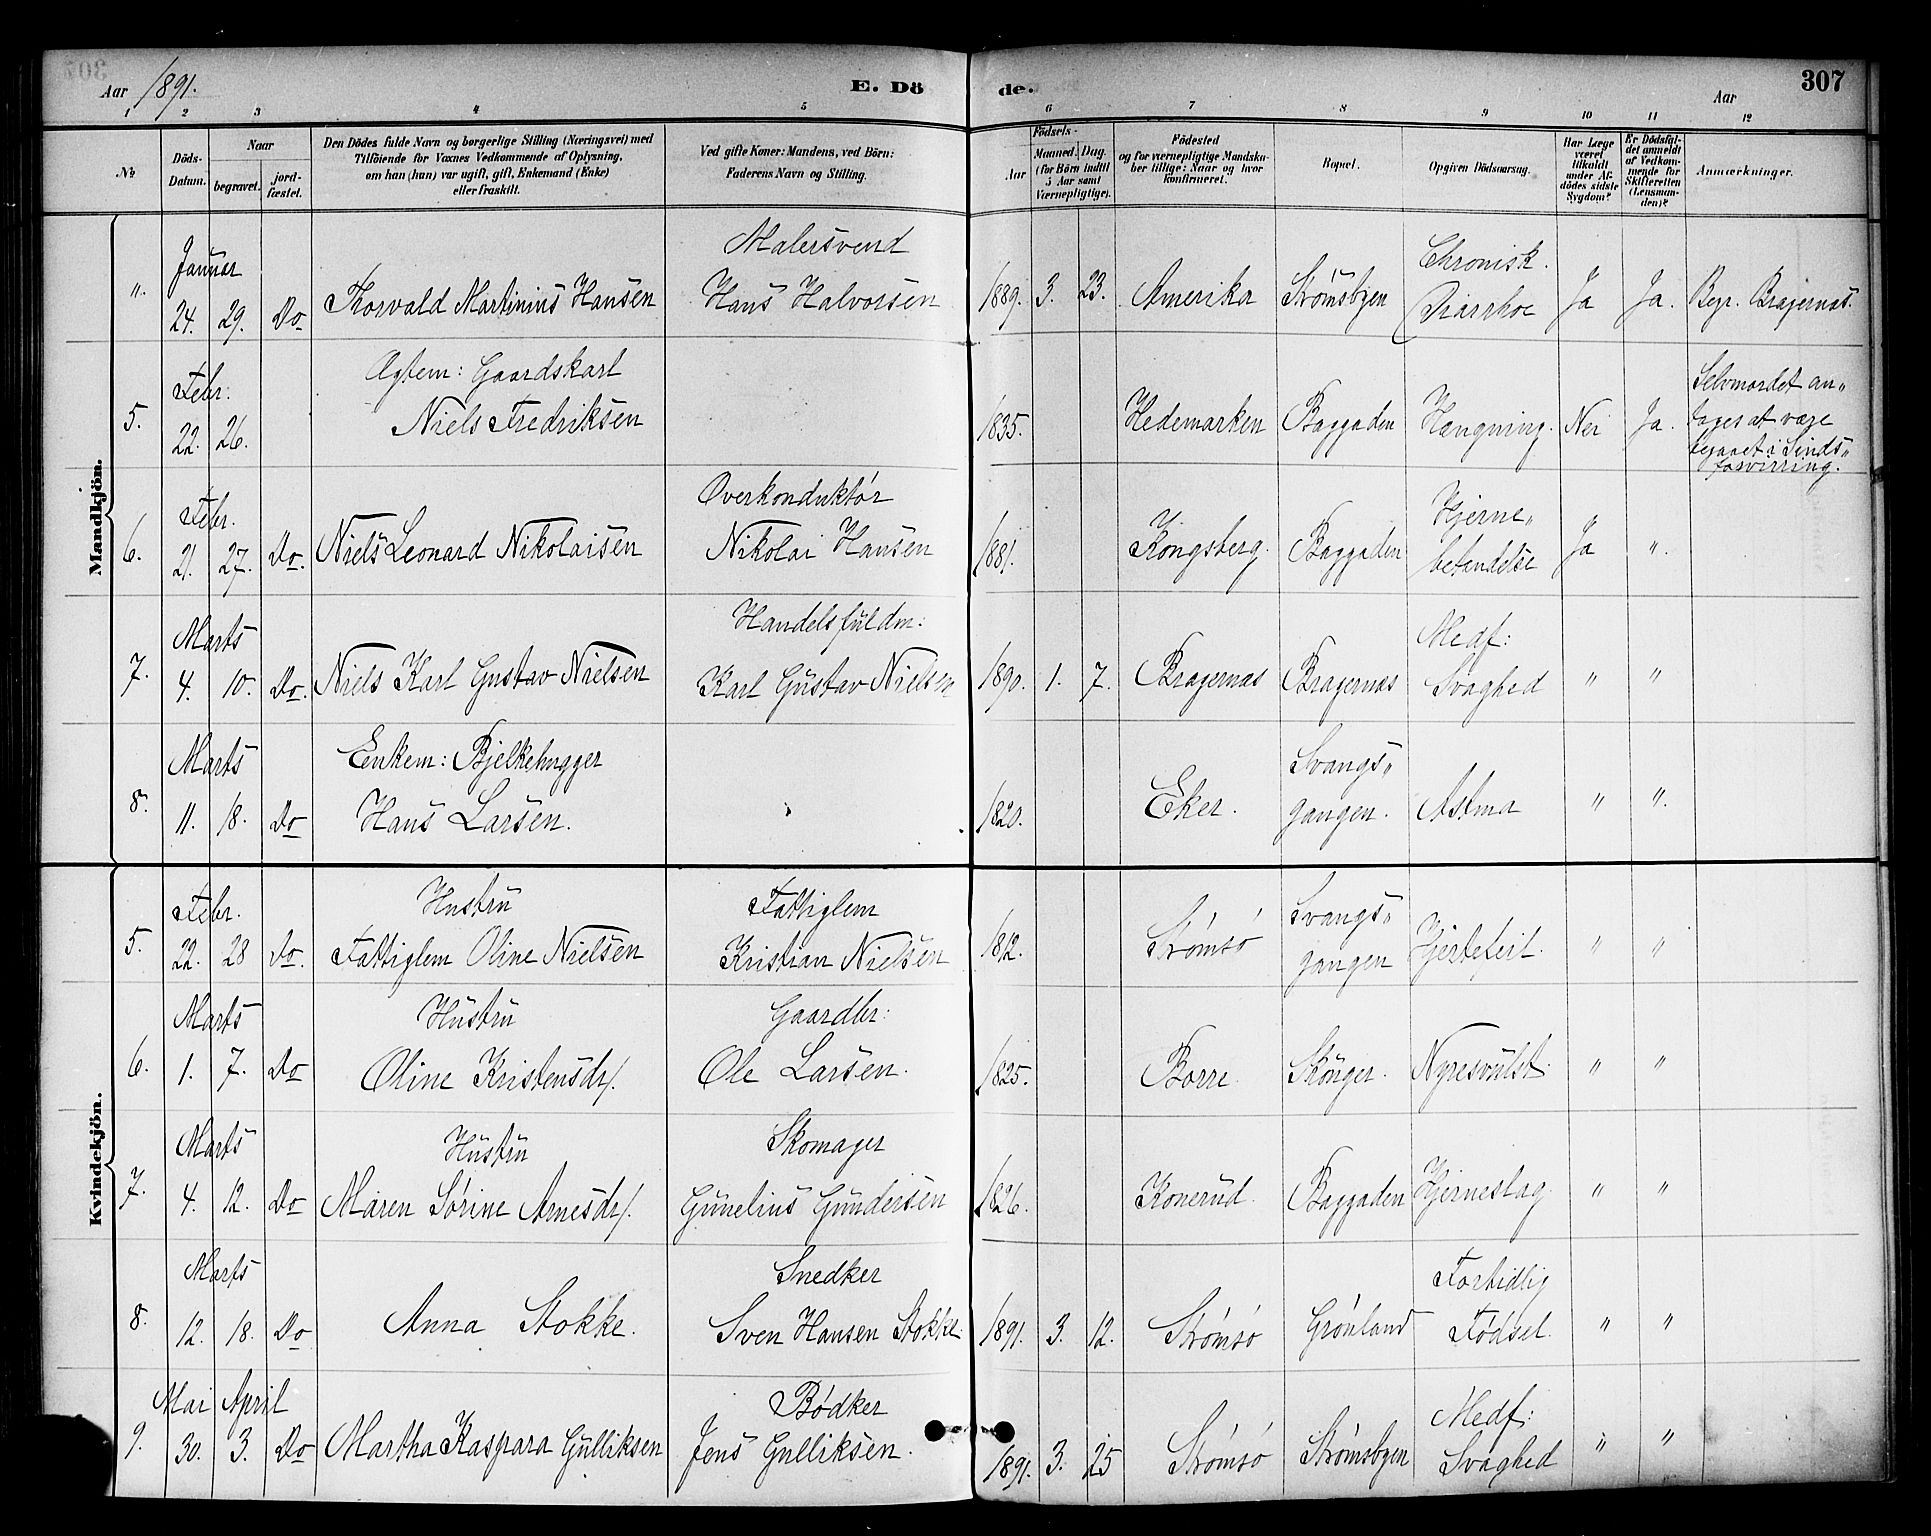 Aar 1891.
E. Dö
de.
Aar
307
1 2 3 4 5 6 7 8 9 10 11 12
№
Döds-
Datum.
Naar
begravet.
jord-
fæstet.
Den Dödes fulde Navn og borgerlige Stilling (Næringsvei) med
Tilföiende for Voxnes Vedkommende af Oplysning,
om han (hun) var ugift, gift, Enkemand (Enke)
eller fraskilt.
Ved gifte Koner: Mandens, ved Börn:
Faderens Navn og Stilling.
Födsels-
Aar
Maaned. Dag
(for Börn indtil
5 Aar samt
Værnepligtige).
Födested
og for værnepligtige Mandska-
ber tillige: Naar og hvor
konfirmeret.
Bopæl.
Opgiven Dödsaarsag.
Har Læge
været
tilkaldt
under Af-
dödes sidste
Sygdom?
Er Dödsfal-
det anmeldt
af Vedkom-
mende for
Skifteretten
(Lensman-
den)?
Anmærkninger.
Mandkjön.
Januar Malersvend Chronisk
" 24. 29. Do Thorvald Martinius Hansen Hans Halvorsen 1889. 3. 23. Amerika Strömsbyen Diarrhoe Ja Ja. Begr. Bragernæs.
Febr. Ægtem: Gaardskarl Selvmordet an"
5. 22. 26. Niels Fredriksen 1835. Hedemarken Baggaden Hængning. Nei Ja. tages at være
begaaet i Sinds"
forvirring.
Febr. Overkonduktör Hjerne"
6. 21. 27. Do. Niels Leonard Nikolaisen Nikolai Hansen 1881. Kongsberg. Baggaden betændelse Ja "
Marts Handelsfuldm: Medf:
7. 4. 10. Do. Niels Karl Gustav Nielsen Karl Gustav Nielsen 1890. 1. 7. Bragernæs Bragernæs Svaghed " "
Marts Enkem: Bjelkehugger Svangs"
8. 11. 18. Do Hans Larsen. 1820. Eker. gangen. Astma " "
Kvindekjön.
Febr. Hustru Fattiglem Svangs"
5. 22. 28 Do. Fattiglem Oline Nielsen Kristian Nielsen 1812. Strømsø gangen Hjertefeil. " "
Marts Hustru Gaardbr:
6. 1. 7. Do Oline Kristensdr. Ole Larsen. 1825. Borre. Skönger. Nyresvulst. " "
Marts Hustru Skomager
7. 4. 12. Do Maren Sörine Arnesdr. Gunelius Gundersen 1826. Konerud. Baggaden Hjerneslag " "
Marts Snedker Fortidlig
8. 12. 18. Do Anna Stokke. Sven Hansen Stokke. 1891. 3. 12. Strømsø Grønland Fødsel. " "
Mai April Bødker Medf:
9. 30. 3. Do Martha Kaspara Gulliksen Jens Gulliksen. 1891. 3. 25 Strømsø Strømsbyen Svaghed " "